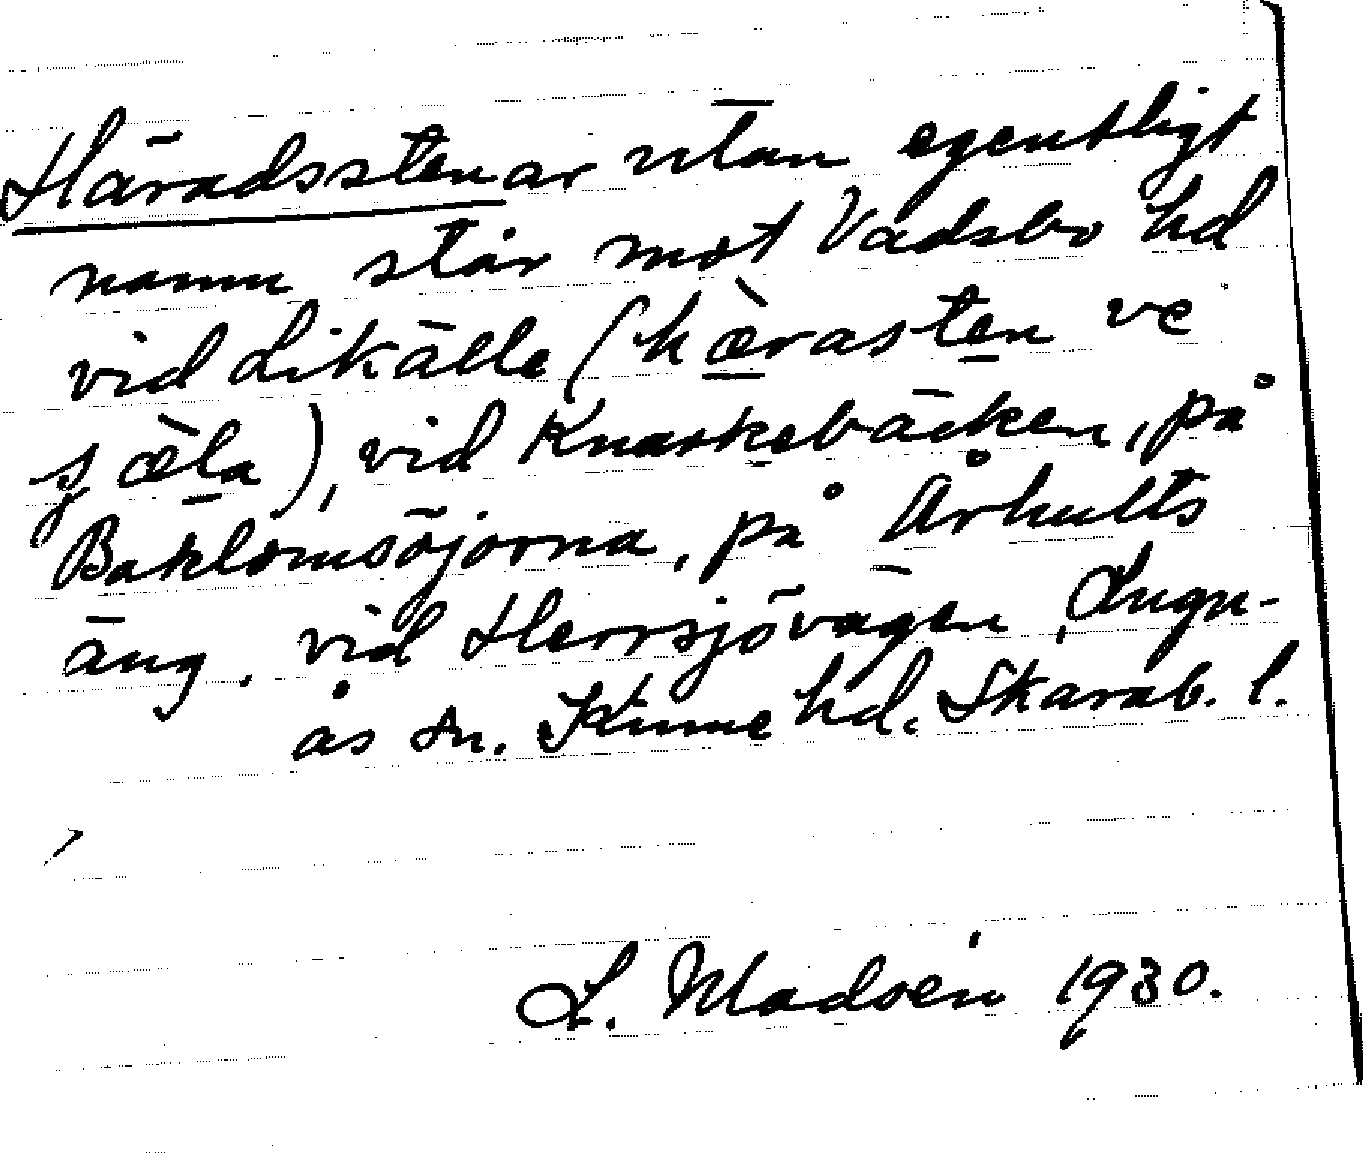 Häradsstenar utan egentligt
namn står mot Vadsbo hd
vid Likälle (hæ̀rasten ve
sjæ̀la), vid Knaskebäcken, på
Baklomsöjorna, på Århults
äng, vid Herrsjövägen, Lugn-
ås sn. Kinne hd. Skarab. l.
L. Madsén 1930.